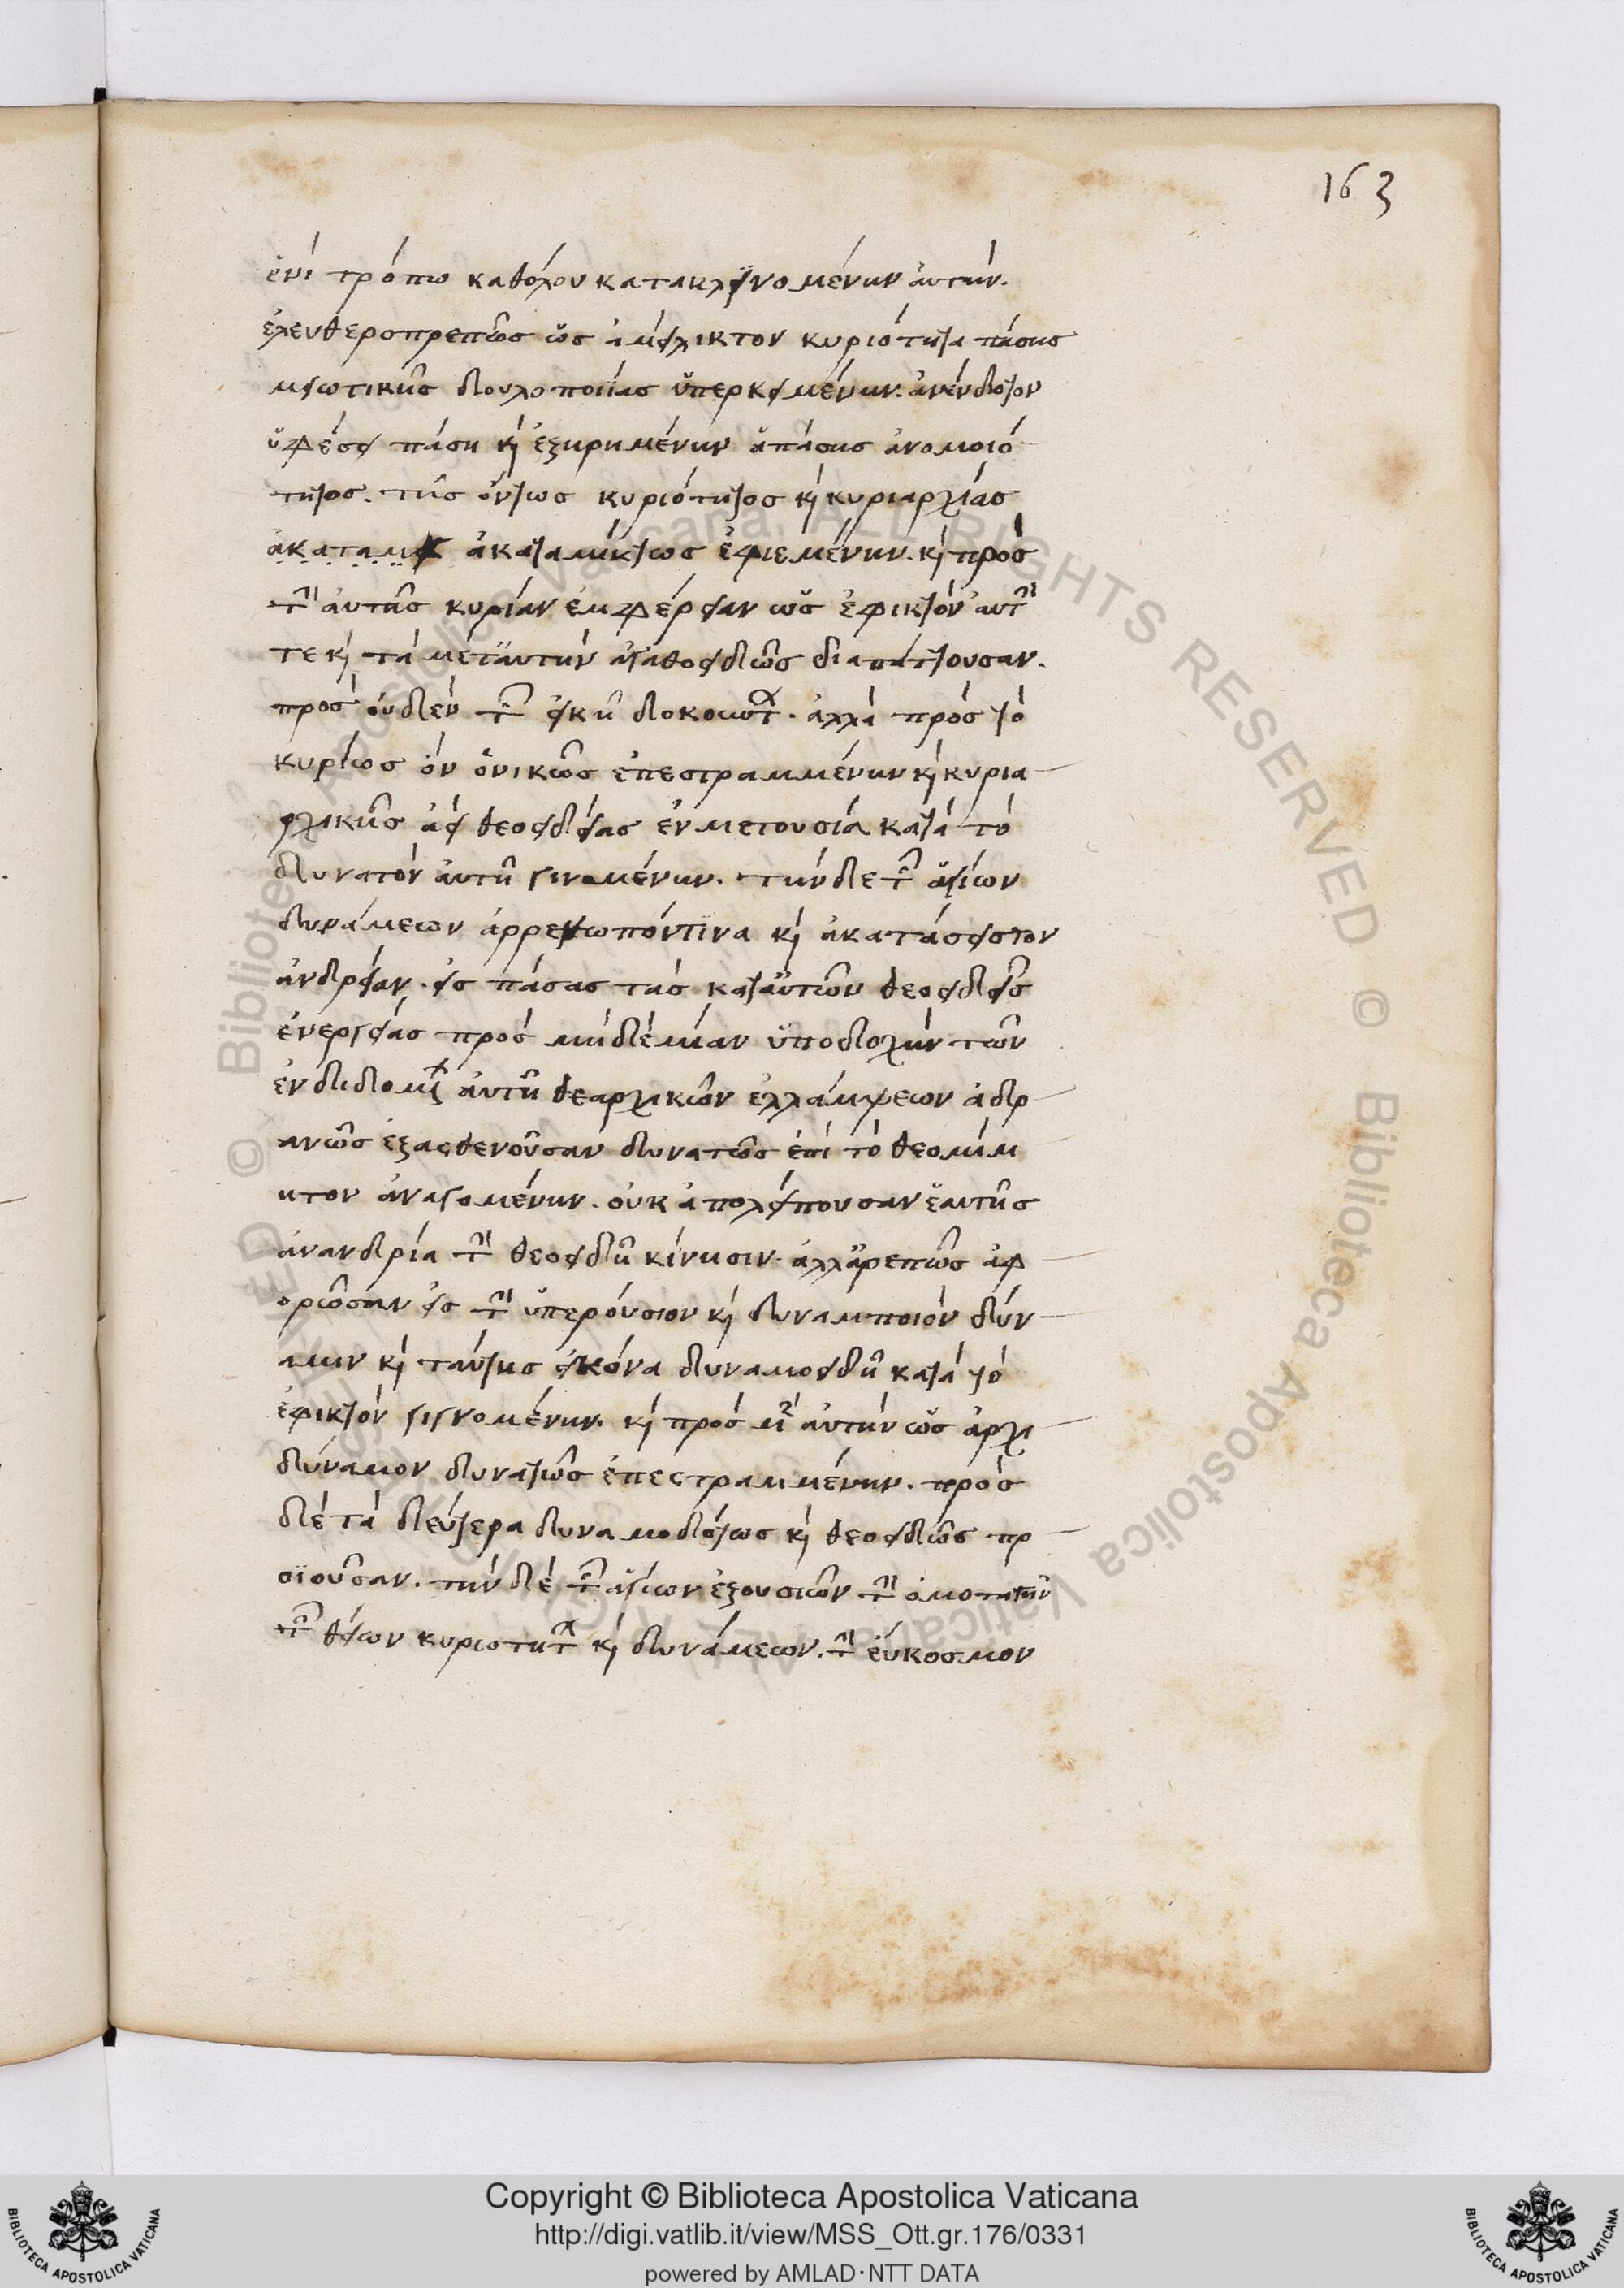 163
ἑνὶ τρόπω καθόλου κατακλεινομένην αὐτήν.
ἐλευθεροπρεπῶς ὡς ἀμείλικτον κυριότητα πάσης
μειωτικῆς δουλοποιίας ὑπερκειμένην. ἀνένδοτον
ὑφέσει πάση κὶ ἐξηρημένην ἁπάσης ἀνομοιό
τητος. τῆς ὄντως κυριότητος κὶ κυριαρχίας
ἀκαταμι ἀκαταμίκτως ἐφιεμένην. κὶ πρὸς
τὴν αὐτῆς κυρίαν ἐμφέρειαν ὡς ἐφικτὸν αὐτήν
τε κὶ τὰ μετ αὐτὴν ἀγαθοειδῶς διαπλάττουσαν.
πρὸς οὐδὲν τῶν εἰκῆ δοκούντων. ἀλλὰ πρὸς τὸ
κυρίως ὂν ὀνικῶς ἐπεστραμμένην κὶ κυρια
ρχικῆς ἀεὶ θεοειδείας ἐν μετουσία κατὰ τὸ
δυνατὸν αὐτῆ γινομένην. τὴν δὲ τῶν ἁγίων
δυνάμεων ἀρρενωπόν τινα κὶ ἀκατάσειστον
ἀνδρείαν. εἰς πάσας τὰς κατ αὐτῶν θεοειδεῖς
ἐνεργείας πρὸς μὴδὲμίαν ὑποδοχὴν τῶν
ἐνδιδομένων αὐτῆ θεαρχικῶν ἐλλάμψεων ἀδρ
ανῶς ἐξασθενοῦσαν δυνατῶς ἐπὶ τὸ θεομίμ
ητον ἀναγομένην. οὐκ ἀπολείπουσαν ἑαυτῆς
ἀνανδρία τὴν θεοειδῆ κίνησιν. ἀλλ ἀρεπῶς ἀφ
ορῶσαν εἰς τὴν ὑπερούσιον κὶ δυναμποιὸν δύν
αμιν κὶ ταύτης εἰκόνα δυναμοειδῆ κατὰ τὸ
ἐφικτὸν γιγνομένην. κὶ πρὸς μὲν αὐτὴν ὡς ἀρχι
δύναμον δυνατῶς ἐπεστραμμένην. πρὸς
δὲ τὰ δεύτερα δυναμοδότως κὶ θεοειδῶς πρ
οϊοῦσαν. τὴν δὲ τῶν ἁγίων ἐξουσιῶν τὴν ὁμοταγῆν
τῶν θείων κυριοτήτων κὶ δυνάμεων. τὴν εὔκοσμον
Copyright © Biblioteca Apostolica Vaticana
http://digi.vatlib.it/view/MSS_Ott.gr.176/0331
powered by AMLAD·NTT DATA